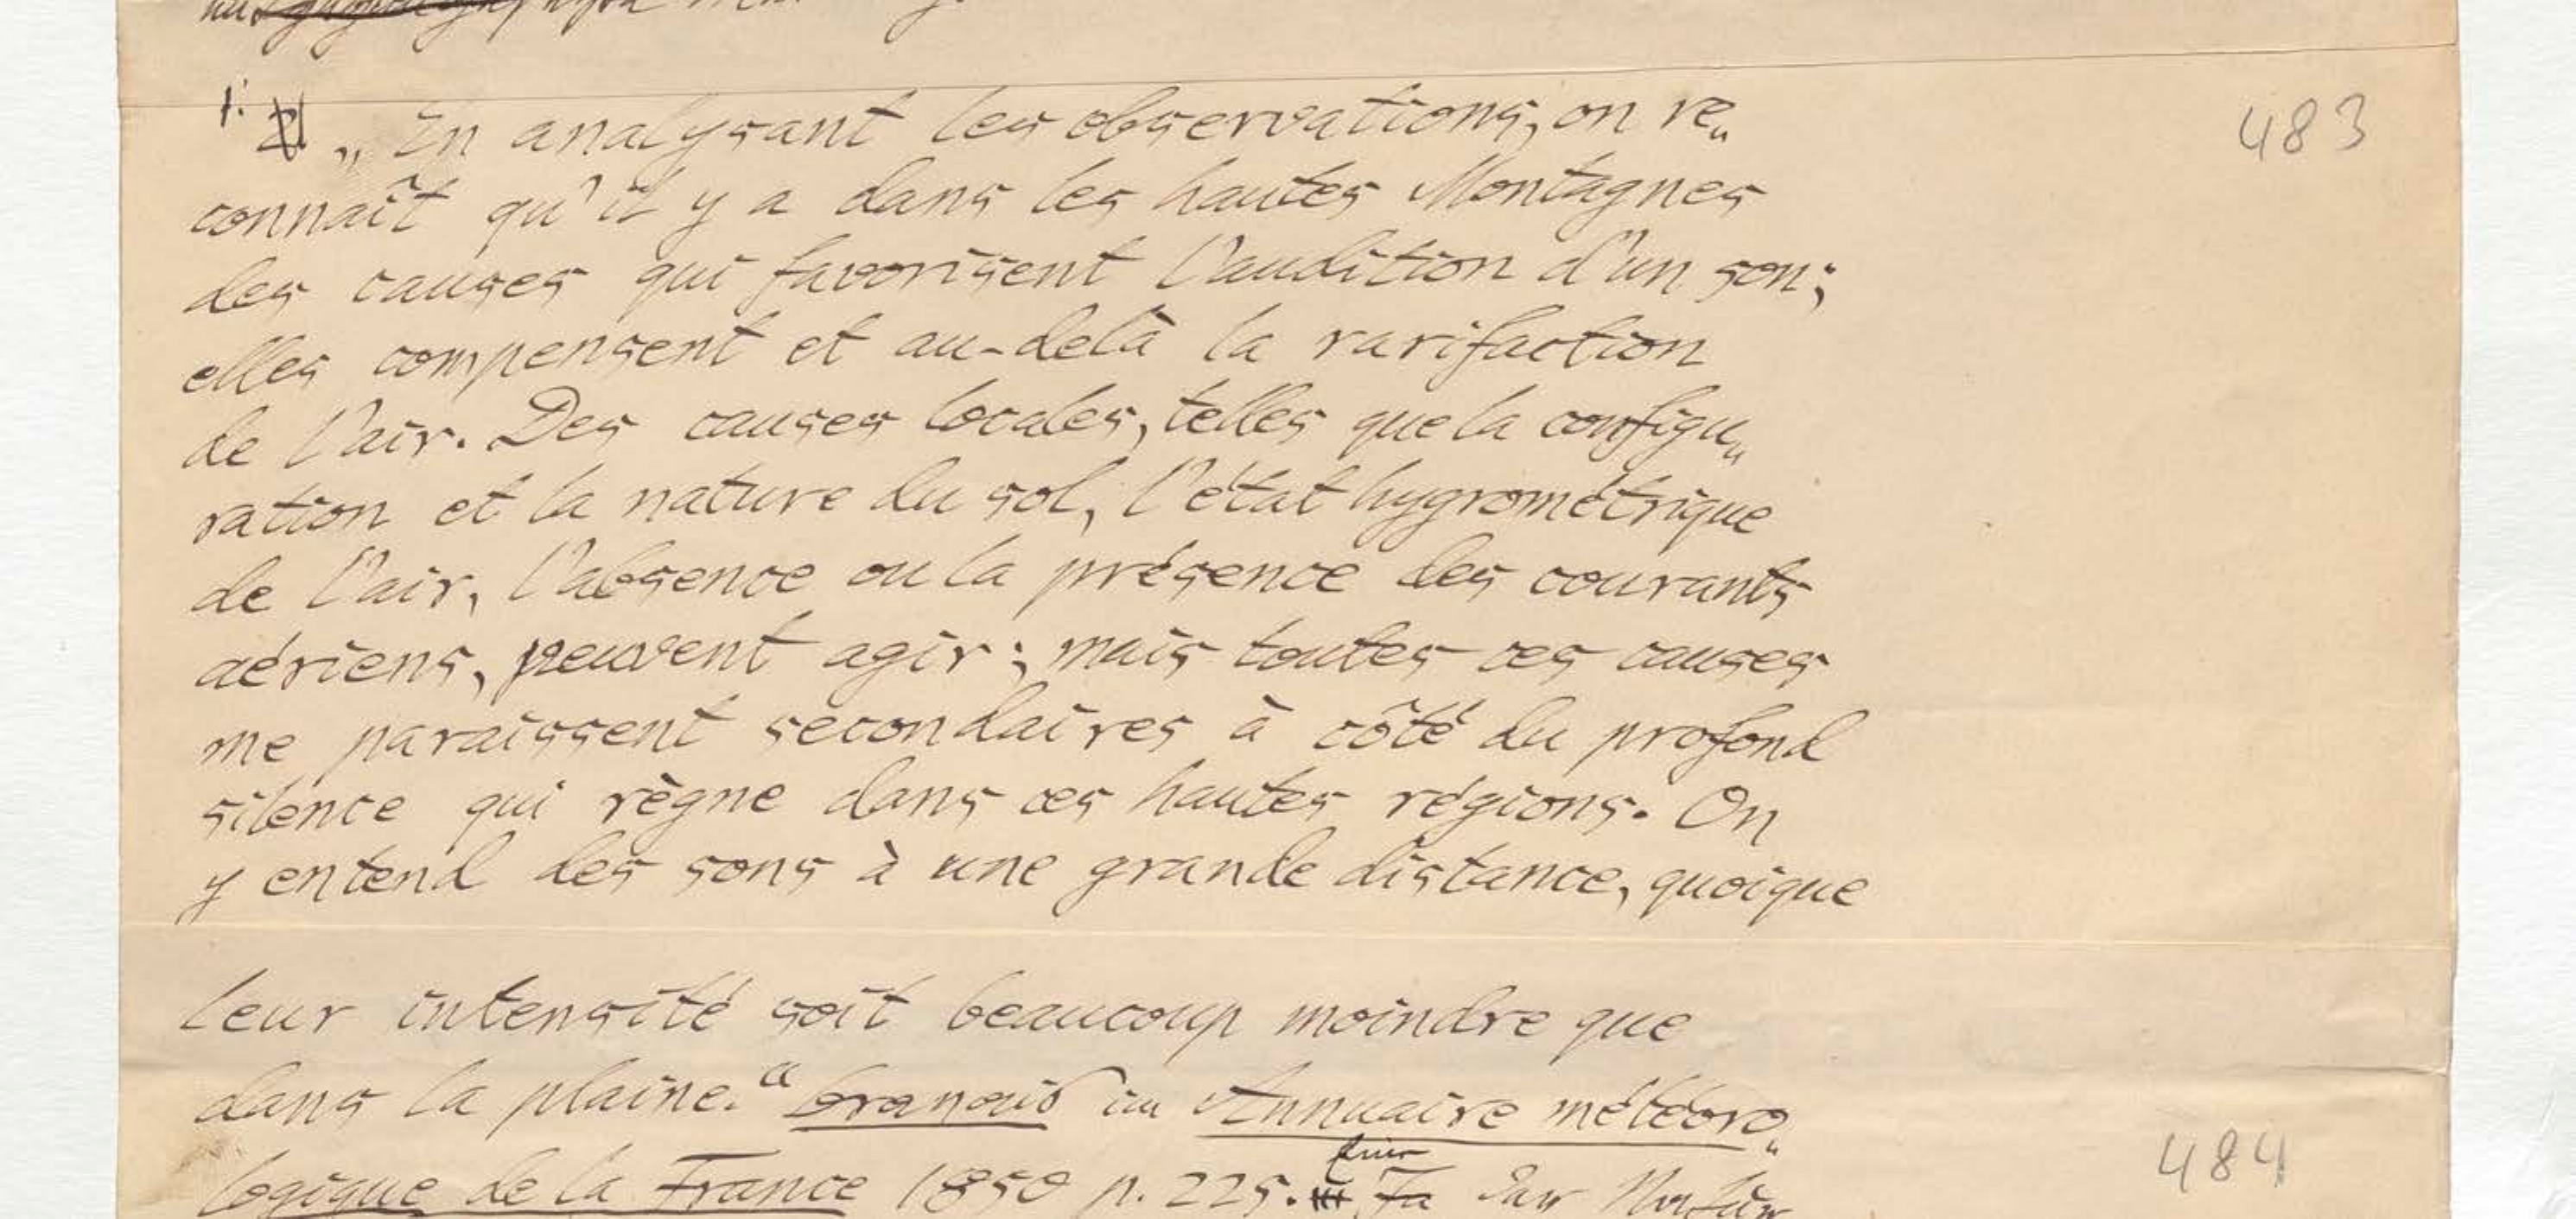 1. „En analysant les observations, on re„
483
connaît qu'il y a dans les hautes Montagnes
des causes qui favorisent l'audition d'un son;
elles compensent et au-delà la rarifaction
de l'air. Des causes locales, telles que la configu„
ration et la nature du sol, l'état hygrométrique
de l'air, l'absence ou la présence des courants
aériens, peuvent agir; mais toutes ces causes
me paraissent secondaires à côté du profond
silence qui règne dans ces hautes régions. On
y entend des sons à une grande distance, quoique
leur intensité soit beaucoup moindre que
dans la plaine.“ im Annuaire météoro„
484
logique de la France 1850 p. 225.